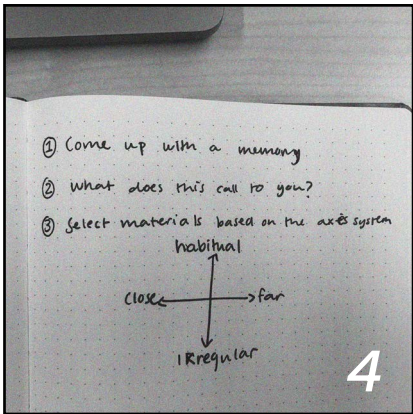 ① Come up with a memory
② What does this call to you?
③ Select materials based on the axes system
habitual
Close far
IRregular
4